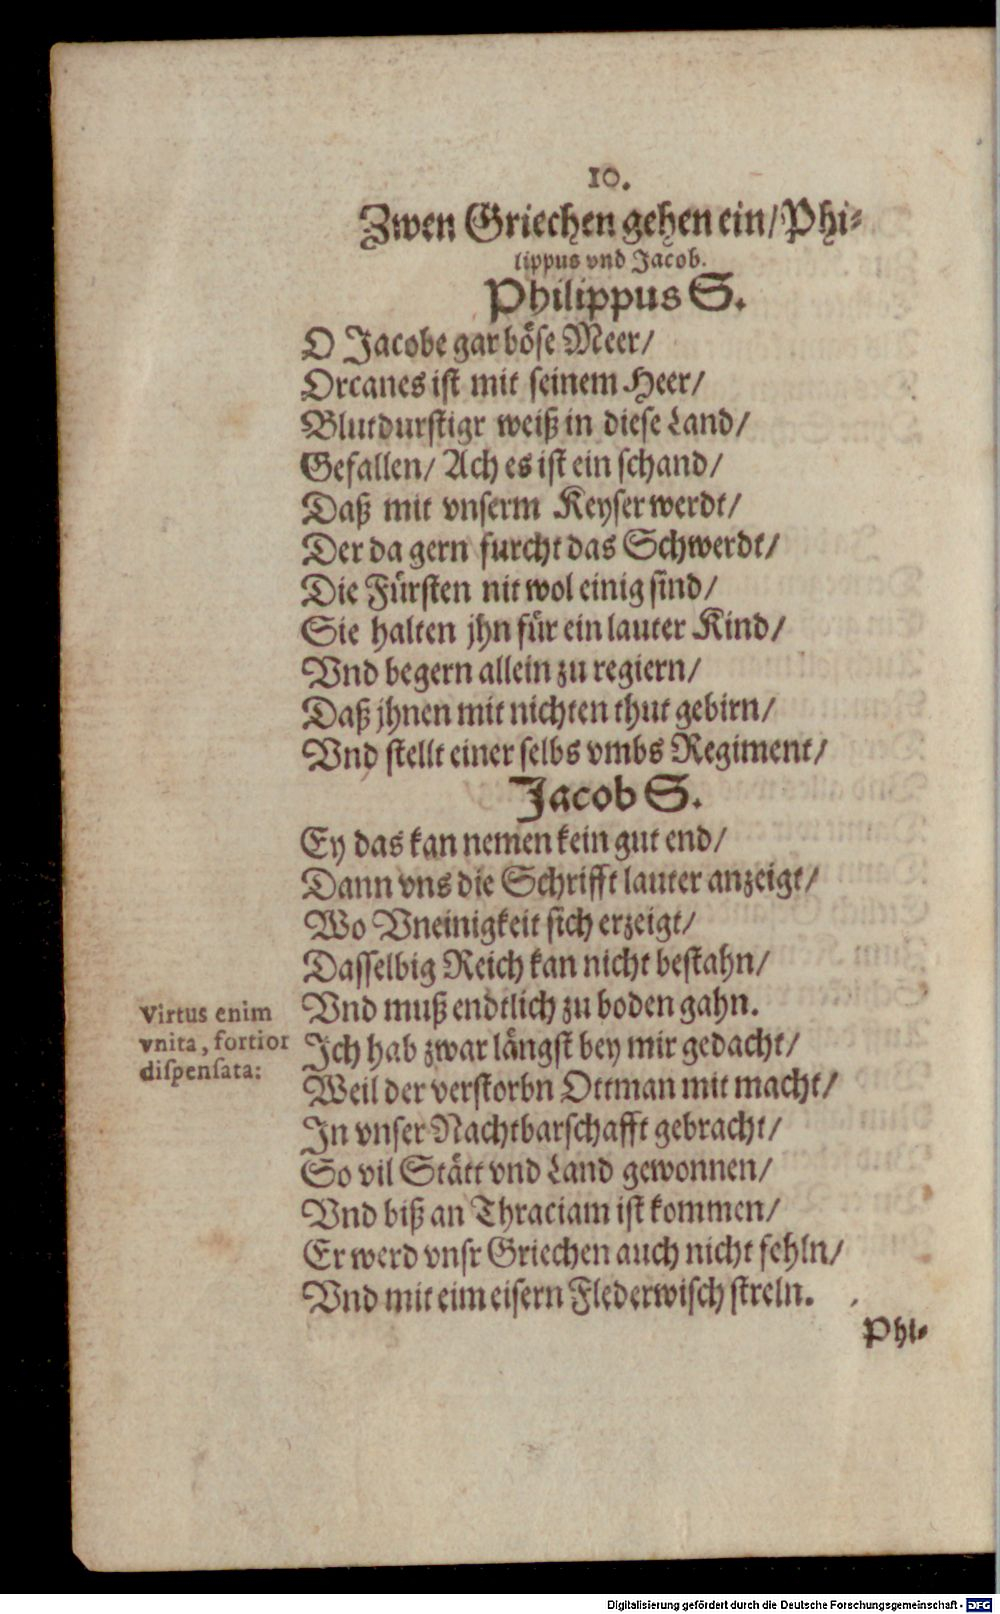 10.
Zwen Griechen gehen ein/ Phi-
lippus vnd Jacob.
Philippus S.
O Jacobe gar böse Meer/
Orcanes ist mit seinem Heer/
Blutdurstigr weiß in diese Land/
Gefallen/ Ach es ist ein schand/
Daß mit vnserm Keyser werdt/
Der da gern furcht das Schwerdt/
Die Fürsten nit wol einig sind/
Sie halten jhn für ein lauter Kind/
Vnd begern allein zu regiern/
Daß jhnen mit nichten thut gebirn/
Vnd stellt einer selbs vmbs Regiment/
Jacob S.
Ey das kan nemen kein gut end/
Dann vns die Schrifft lauter anzeigt/
Wo Vneinigkeit sich erzeigt/
Dasselbig Reich kan nicht bestahn/
Vnd muß endtlich zu boden gahn.
Virtus enim
vnita, fortior
dispensata:
Ich hab zwar längst bey mir gedacht/
Weil der verstorbn Ottman mit macht/
In vnser Nachtbarschafft gebracht/
So vil Stätt vnd Land gewonnen/
Vnd biß an Thraciam ist kommen/
Er werd vnsr Griechen auch nicht fehln/
Vnd mit eim eisern Flederwisch streln.
Phi-
Digitalisierung gefördert durch die Deutsche Forschungsgemeinschaft - DFG